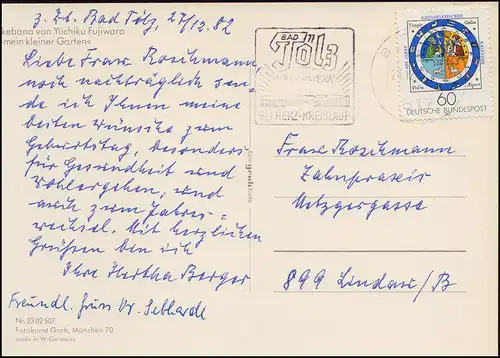 z. Zt. Bad Tölz 27/12.82
Ikebana von Yūchiku Fujiwara
»Mein kleiner Garten«
Liebe Frau Roschmann
noch nachträglich sen-
de ich Ihnen meine
besten Wünsche zum
Geburtstag, besonders
für Gesundheit und
Wohlergehen, und
auch zum Jahres-
wechsel. Mit herzlichen
Grüßen bin ich
Ihre Hertha Berger
Freundl. Gruss Dr. Gebhardt
Nr. 23 02 507
Fotokunst Groh, München 70
made in W-Germany
groh Karte
BAD
Tölz
BEI HERZ-KREISLAUF
GREGORIANISCHER
60
DEUTSCHE BUNDESPOST
Frau Roschmann
Zahnpraxis
Metzgergasse
899 Lindau/B